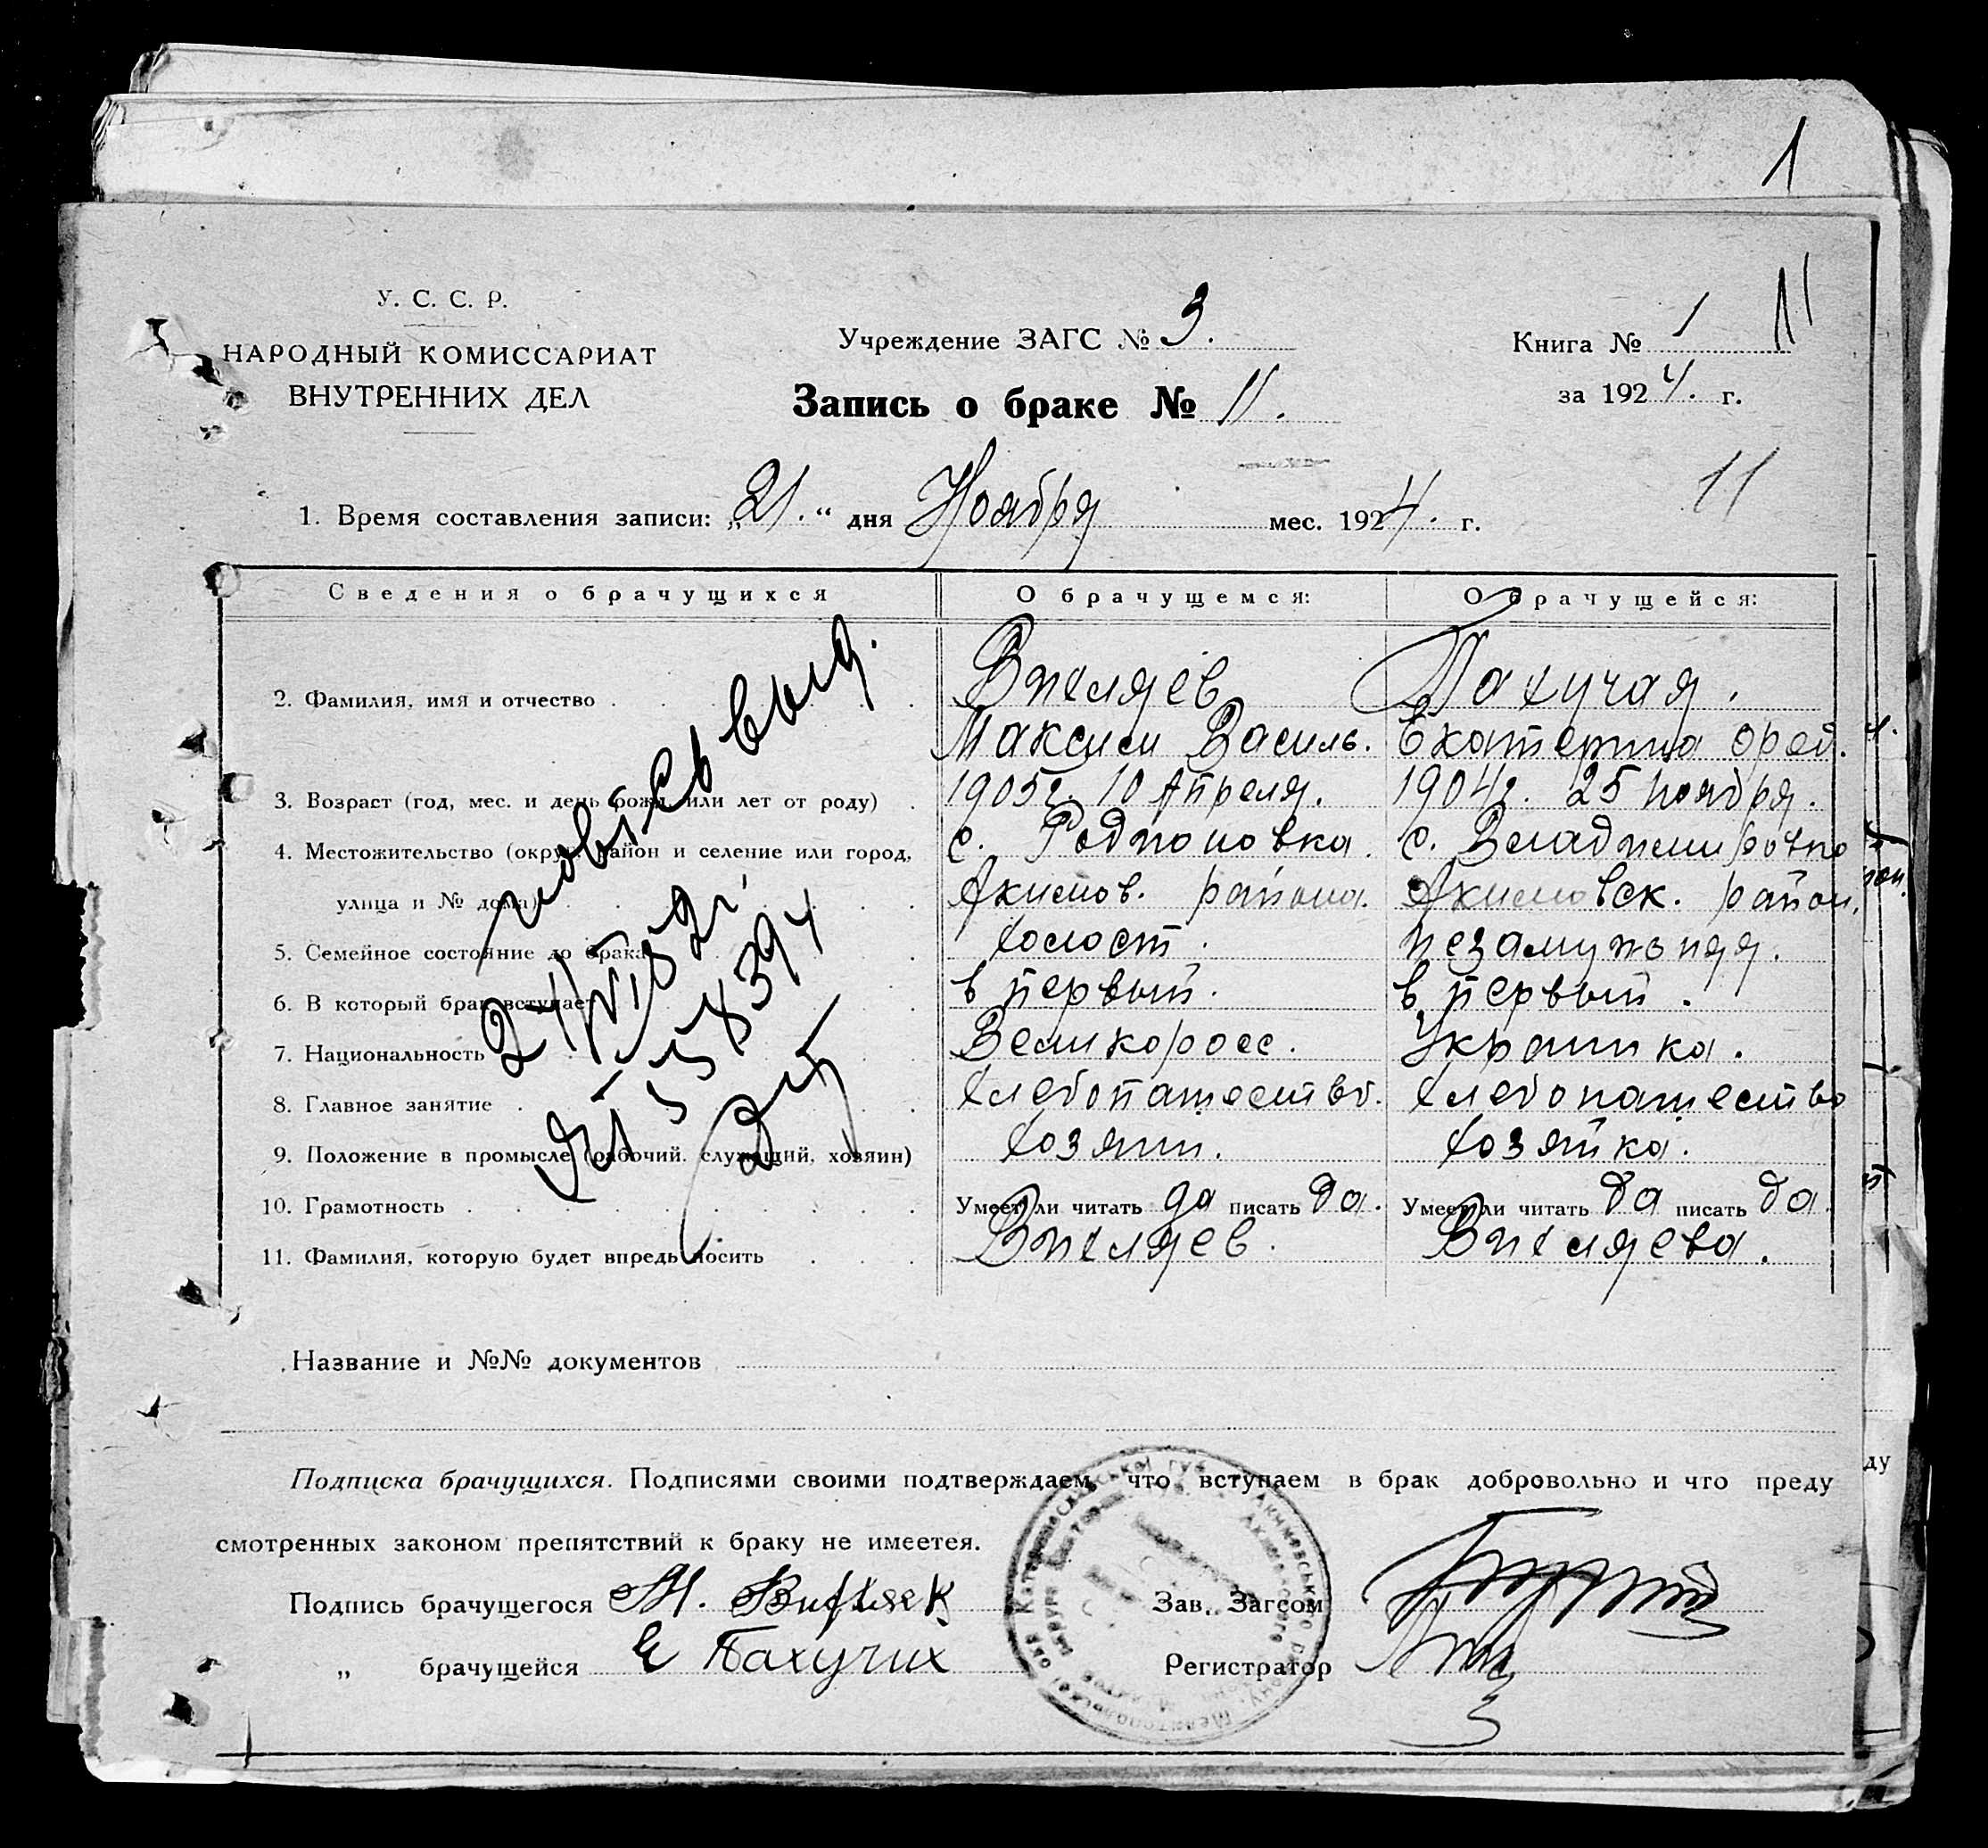 1
У. С. С. Р.
НАРОДНЫЙ КОМИССАРИАТ
ВНУТРЕННИХ ДЕЛ
Учреждение ЗАГС № 3.
Запись о браке № 11.
Книга № 1
11
за 1924. г.
11
1. Время составления записи: „21.“ дня Ноября мес. 1924. г.
Сведения о брачущихся О брачущемся: О брачущейся:
2. Фамилия, имя и отчество Вихляев Пахучая.
Максим Василь. Екатерина
3. Возраст (год, мес. и день рожд. или лет от роду) 1905г. 10 Апреля. 1904г. 25 ноября.
4. Местожительство (округ, район и селение или город, с. Родионовка. с. Владимировка
улица и № дома) Акимов. района. Акимовск. район.
5. Семейное состояние до брака холост. незамужняя.
6. В который брак вступает в первый. в первый.
7. Национальность Великоросс. Украинка.
8. Главное занятие хлебопашество. хлебопашество
9. Положение в промысле (рабочий, служащий, хозяин) хозяин. хозяйка.
10. Грамотность Умеет ли читать да писать да. Умеет ли читать да писать да.
11. Фамилия, которую будет впредь носить Вихляев. Вихляева.
Название и №№ документов
Подписка брачущихся. Подписями своими подтверждаем, что вступаем в брак добровольно и что преду
смотренных законом препятствий к браку не имеется.
Подпись брачущегося М.
Зав. Загсом
„ брачущейся Е Пахучих
Регистратор